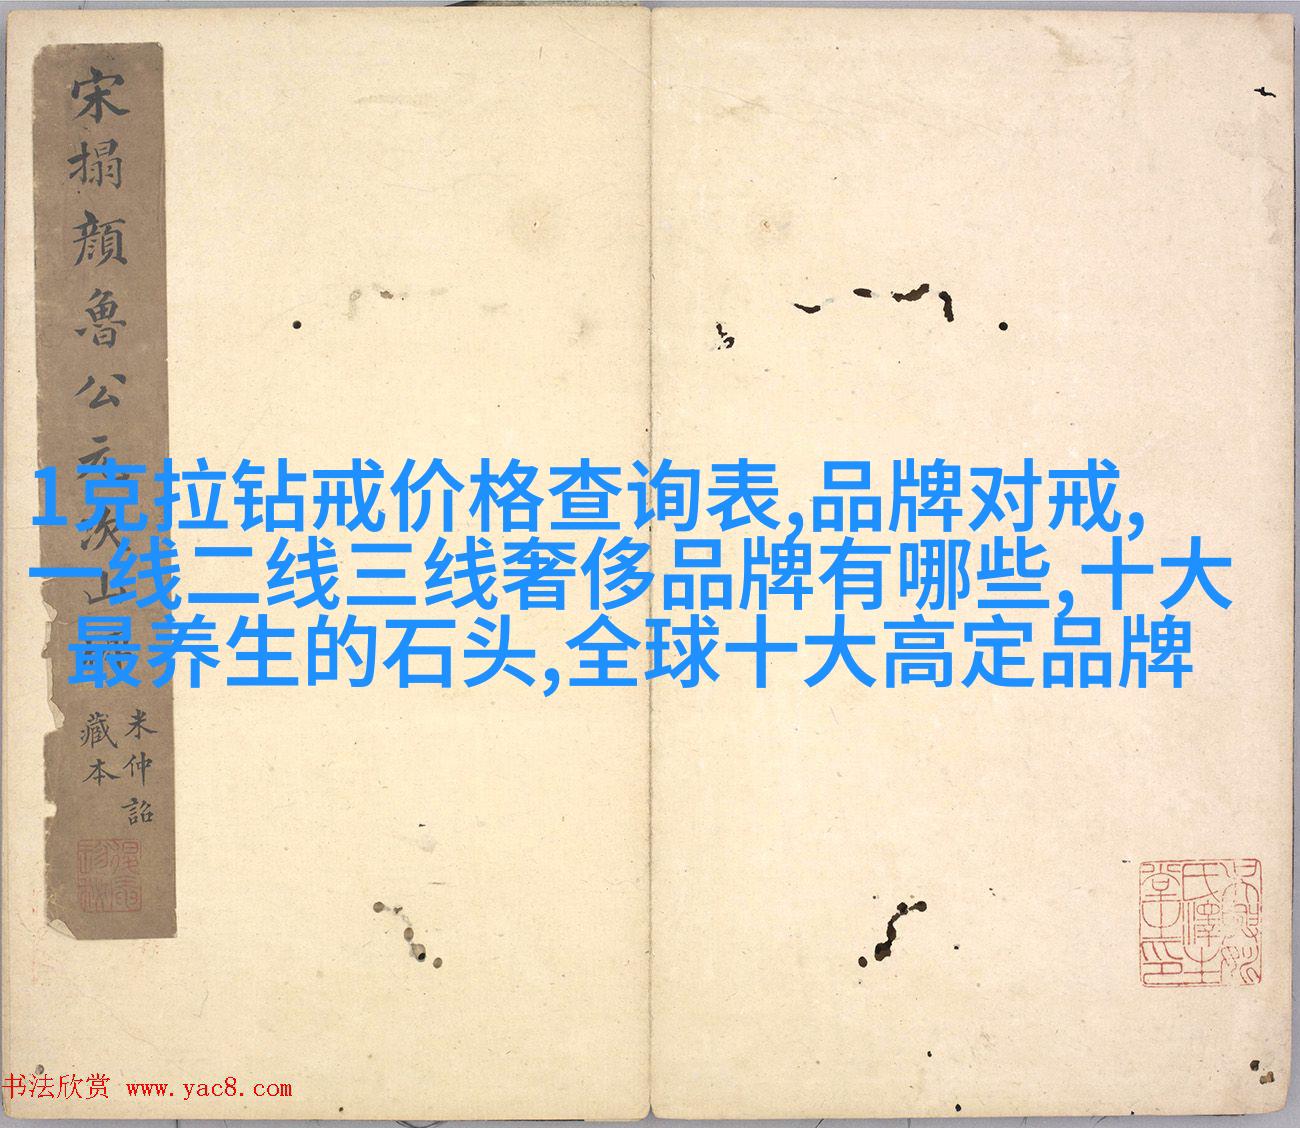 宋搨顏魯公元次山
米仲詔
藏本
1克拉钻戒价格查询表,品牌对戒,
一线二线三线奢侈品牌有哪些,十大
最养生的石头,全球十大高定品牌
书法欣赏 www.yac8.com